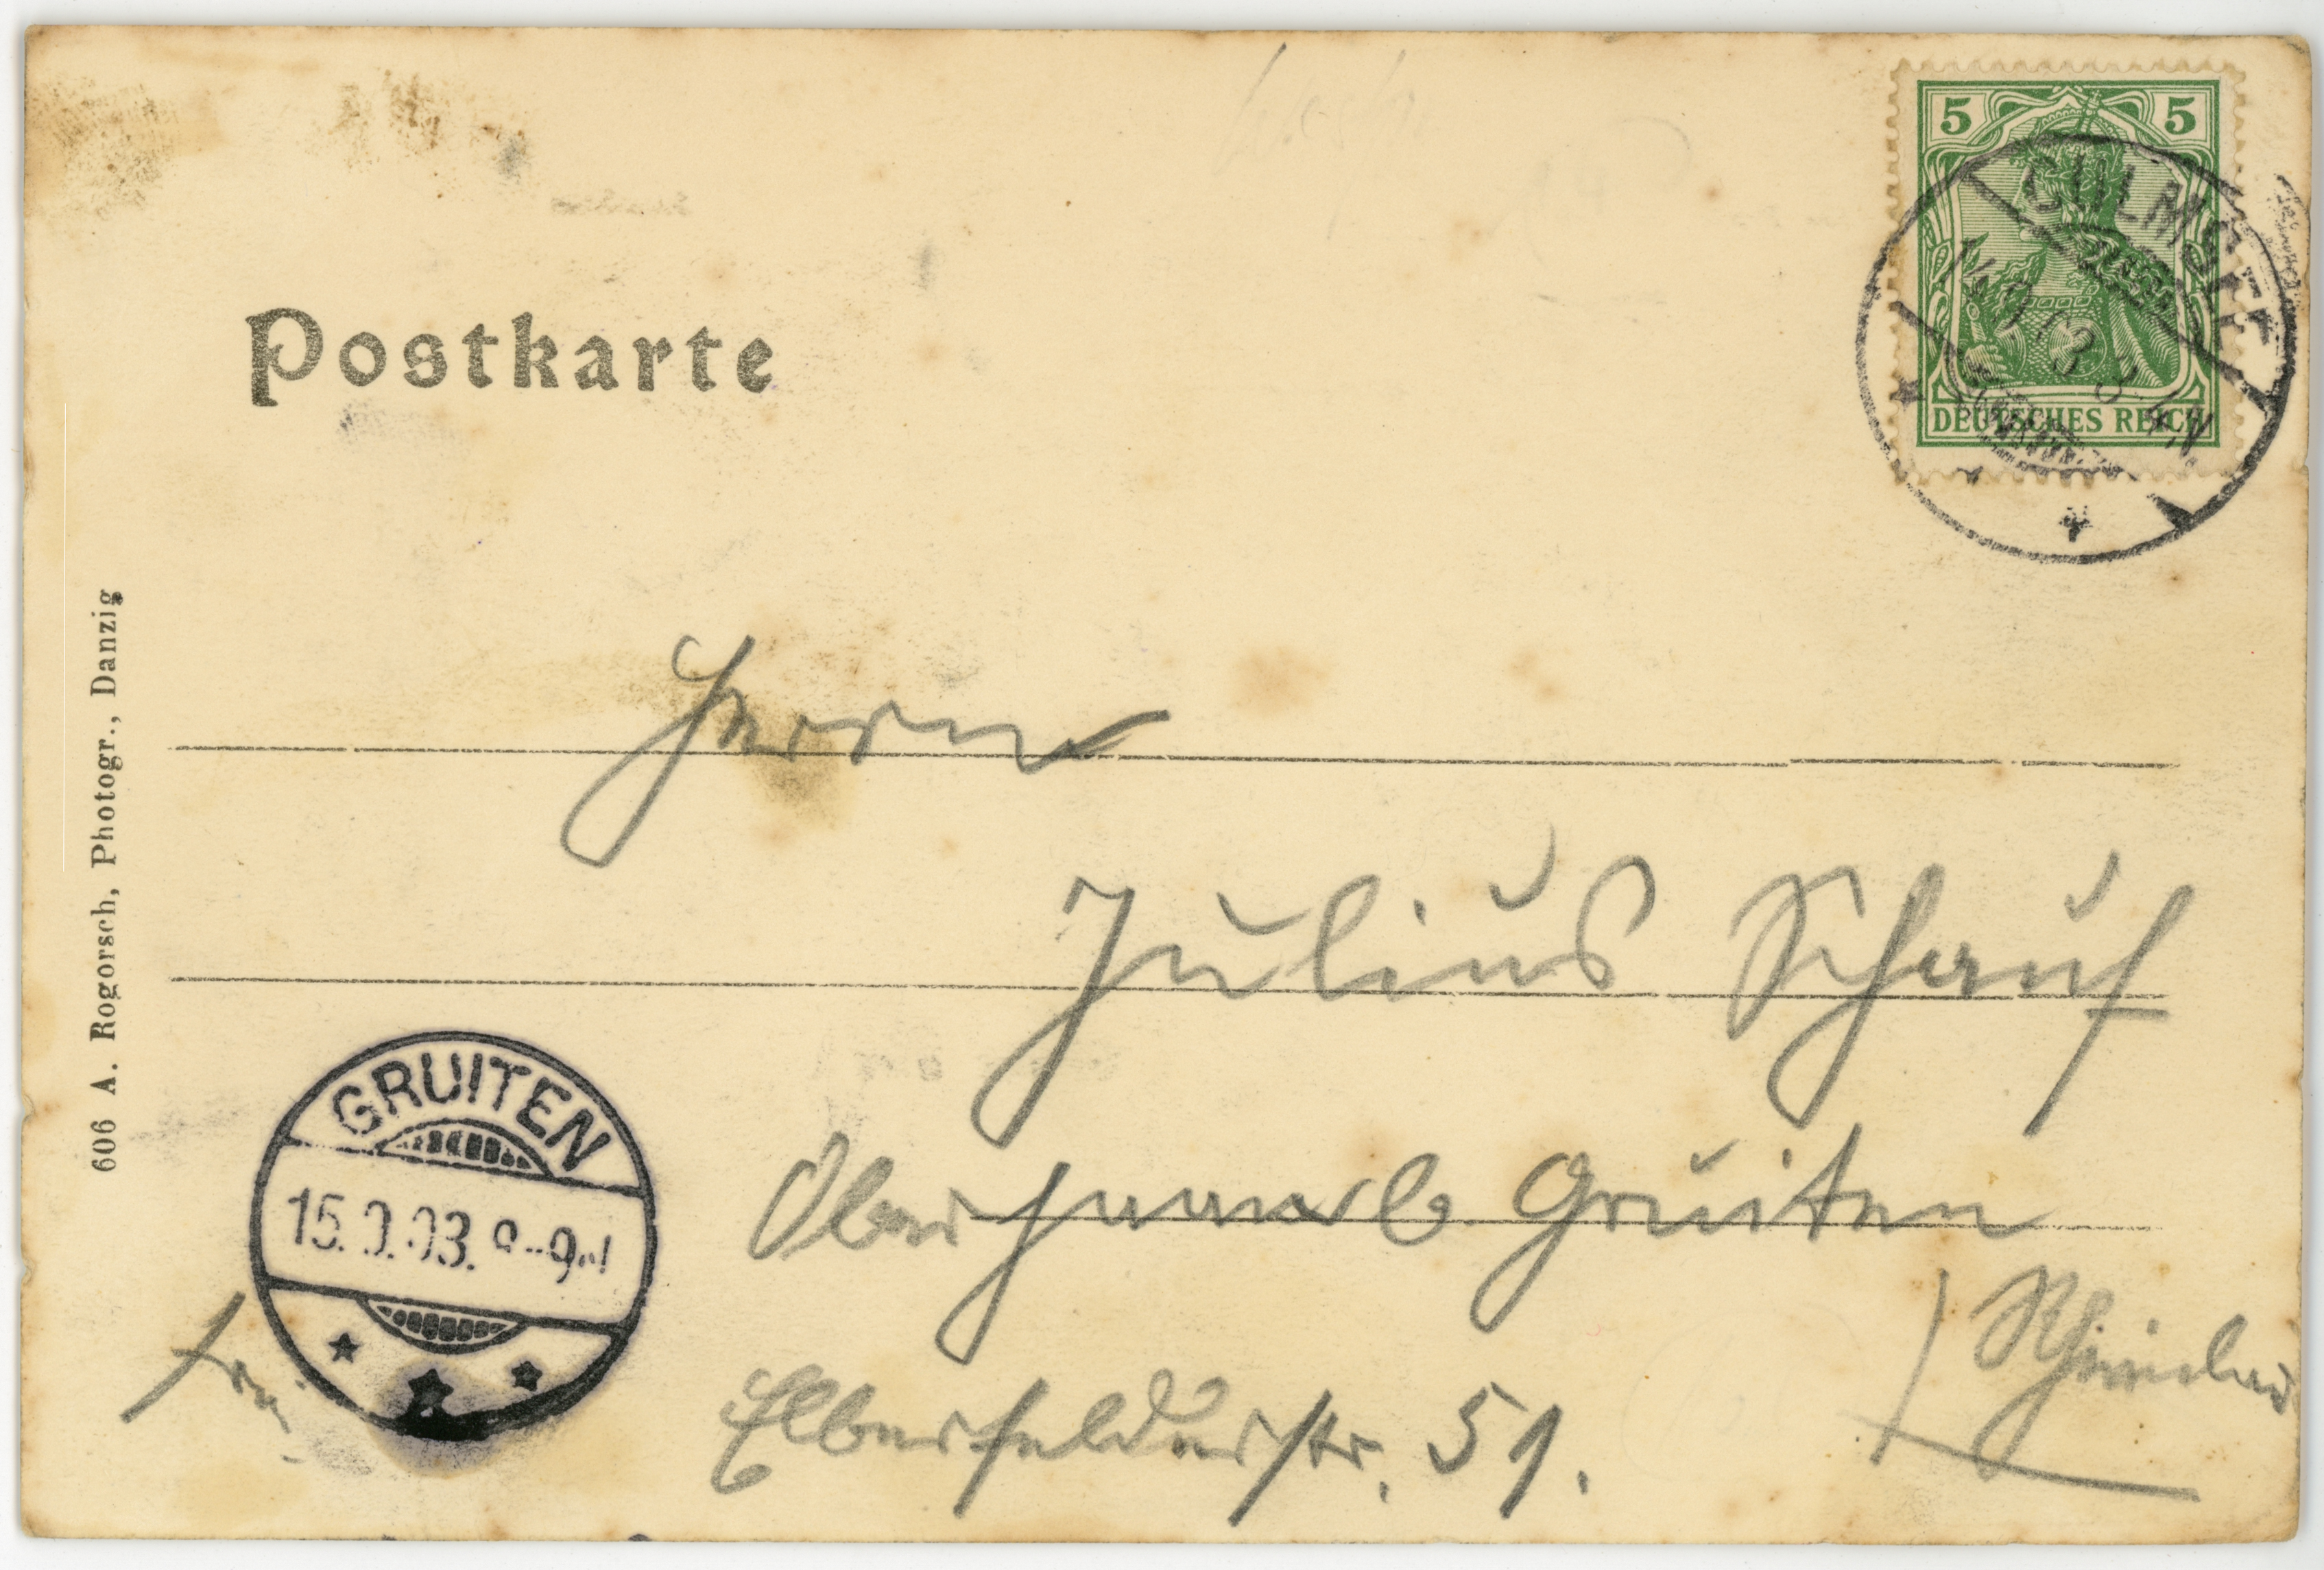 5 5
DEUTSCHES REICH
CULMSEE
Postkarte
606 A. Rogorsch, Photogr., Danzig
Herrn
Julius Schauf
Oberhaan b. Gruiten
Rheinland
Elberfelderstr. 51.
GRUITEN
15.9.03. 8-9N